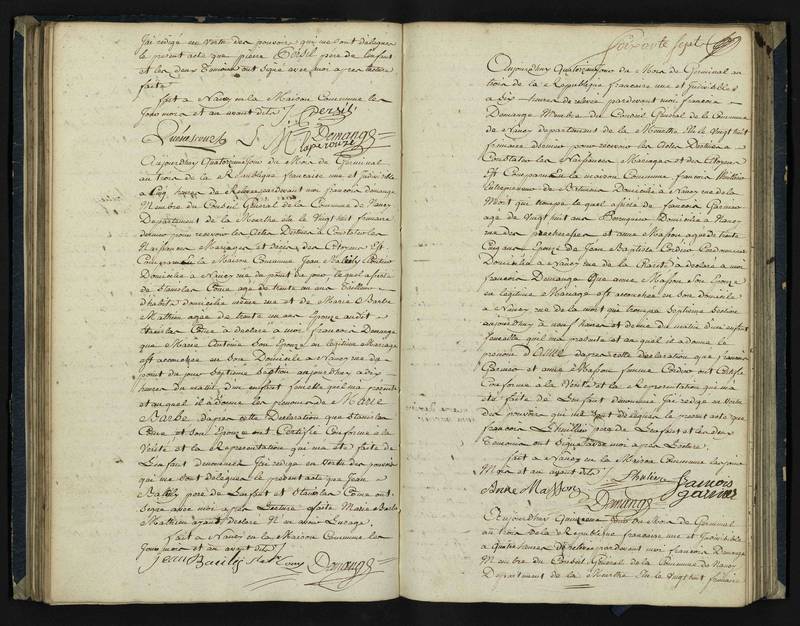 J'ai rédigé en vertu des pouvoirs qui me sont délégués
le présent acte que pierre Persil père de l'enfant
et les deux Témoins ont signé avec moi après lecture
faite
fait a Nancy en la Maison Commune les
Jour mois et an avant dits
Persil
Demange
Aujourdhuy Quatorze jour du Mois de Germinal
an trois de la République française une et Indivisible
a Cinq heures de Relevée pardevant moi francois demange
Membre du Conseil Général de la Commune de Nancy
Département de la Meurthe élu le Vingt huit frimaire
dernier pour recevoir les Actes Destinés a Constater les
Naissances Mariages et décès des Citoyens Est
Comparu En la Maison Commune Jean
Domicilié a Nancy rue du pont de jour lequel assisté
de Stanislas age de trente un ans Tailleur
d'habits domicilié même rue et de Marie Barbe
Mathieu agée de trente un ans Epouse audit
Stanislas a déclaré a moi francois Demange
que Marie Antoine Son Epouse en légitime Mariage
est accouchée en Son Domicile a Nancy rue du
point du jour Septième Section aujourdhuy a dix
heures du matin d'un enfant femelle quil ma présenté
et auquel il a donné les prénoms de Marie
Barbe daprès cette Déclaration que Stanislas
et Son Epouse ont Certifié Conforme à la
Vérité et la Représentation qui m'a été faite de
L'enfant denommé J'ai rédigé en Vertu des pouvoirs
qui me sont délégués le présent acte que Jean
père de L'enfant et Stanislas ont
Signé avec moi après Lecture faite Marie Barbe
Mathieu ayant déclaré n'en avoir L'usage.
fait a Nancy en la Maison Commune les
Jour mois et an avant dits
Jean
Demange
Soixante Sept
Aujourdhuy Quatorze jour du Mois de Germinal an
trois de la République francaise une et Indivisible
a Six heures de relevée pardevant moi francois
Demange Membre du Conseil Général de la Commune
de Nancy département de la Meurthe élu le Vingt huit
frimaire dernier pour recevoir les Actes Destinés a
Constater les Naissances Mariages et des Citoyens
Est Comparu En la maison Commune francois
Entrepreneur de Bâtimens Domicilié a Nancy rue de la
Mont qui trompe lequel assisté de francois Garnier
age de Vingt huit ans Domicilié a Nancy
rue des et anne Masson agée de trente
Cinq ans Epouse de Jean Baptiste Cordonnier
Domicilié a Nancy rue de la Charité a déclaré a moi
francois Demange Que anne Masson Son Epouse
en légitime Mariage est accouchée en Son domicile
a Nancy rue de la mort qui trompe Septième Section
aujourdhuy a neuf heures et demie du matin d'un enfant
femelle quil ma présenté et auquel il a donné le
prénom d'Anne daprès cette déclaration que francois
Garnier et anne Masson femme ont Certifié
Conforme à la Vérité et la Représentation qui m'a
été faite de L'enfant denommé J'ai rédigé en Vertu
des pouvoirs qui me sont délégués le présent acte que
francois père de L'enfant et les deux
Temoins ont Signé avec moi après Lecture.
fait a Nancy en la Maison Commune les jour
Mois et an avant dits
francois
garnier
Anne Masson
Demange
Aujourdhuy Quinzieme jour du Mois de Germinal
an trois de la République francaise une et Indivisible
a Quatre heures de Relevée pardevant moi francois Demange
Membre du Conseil Général de la Commune de Nancy
Département de la Meurthe élu le Vingt huit frimaire